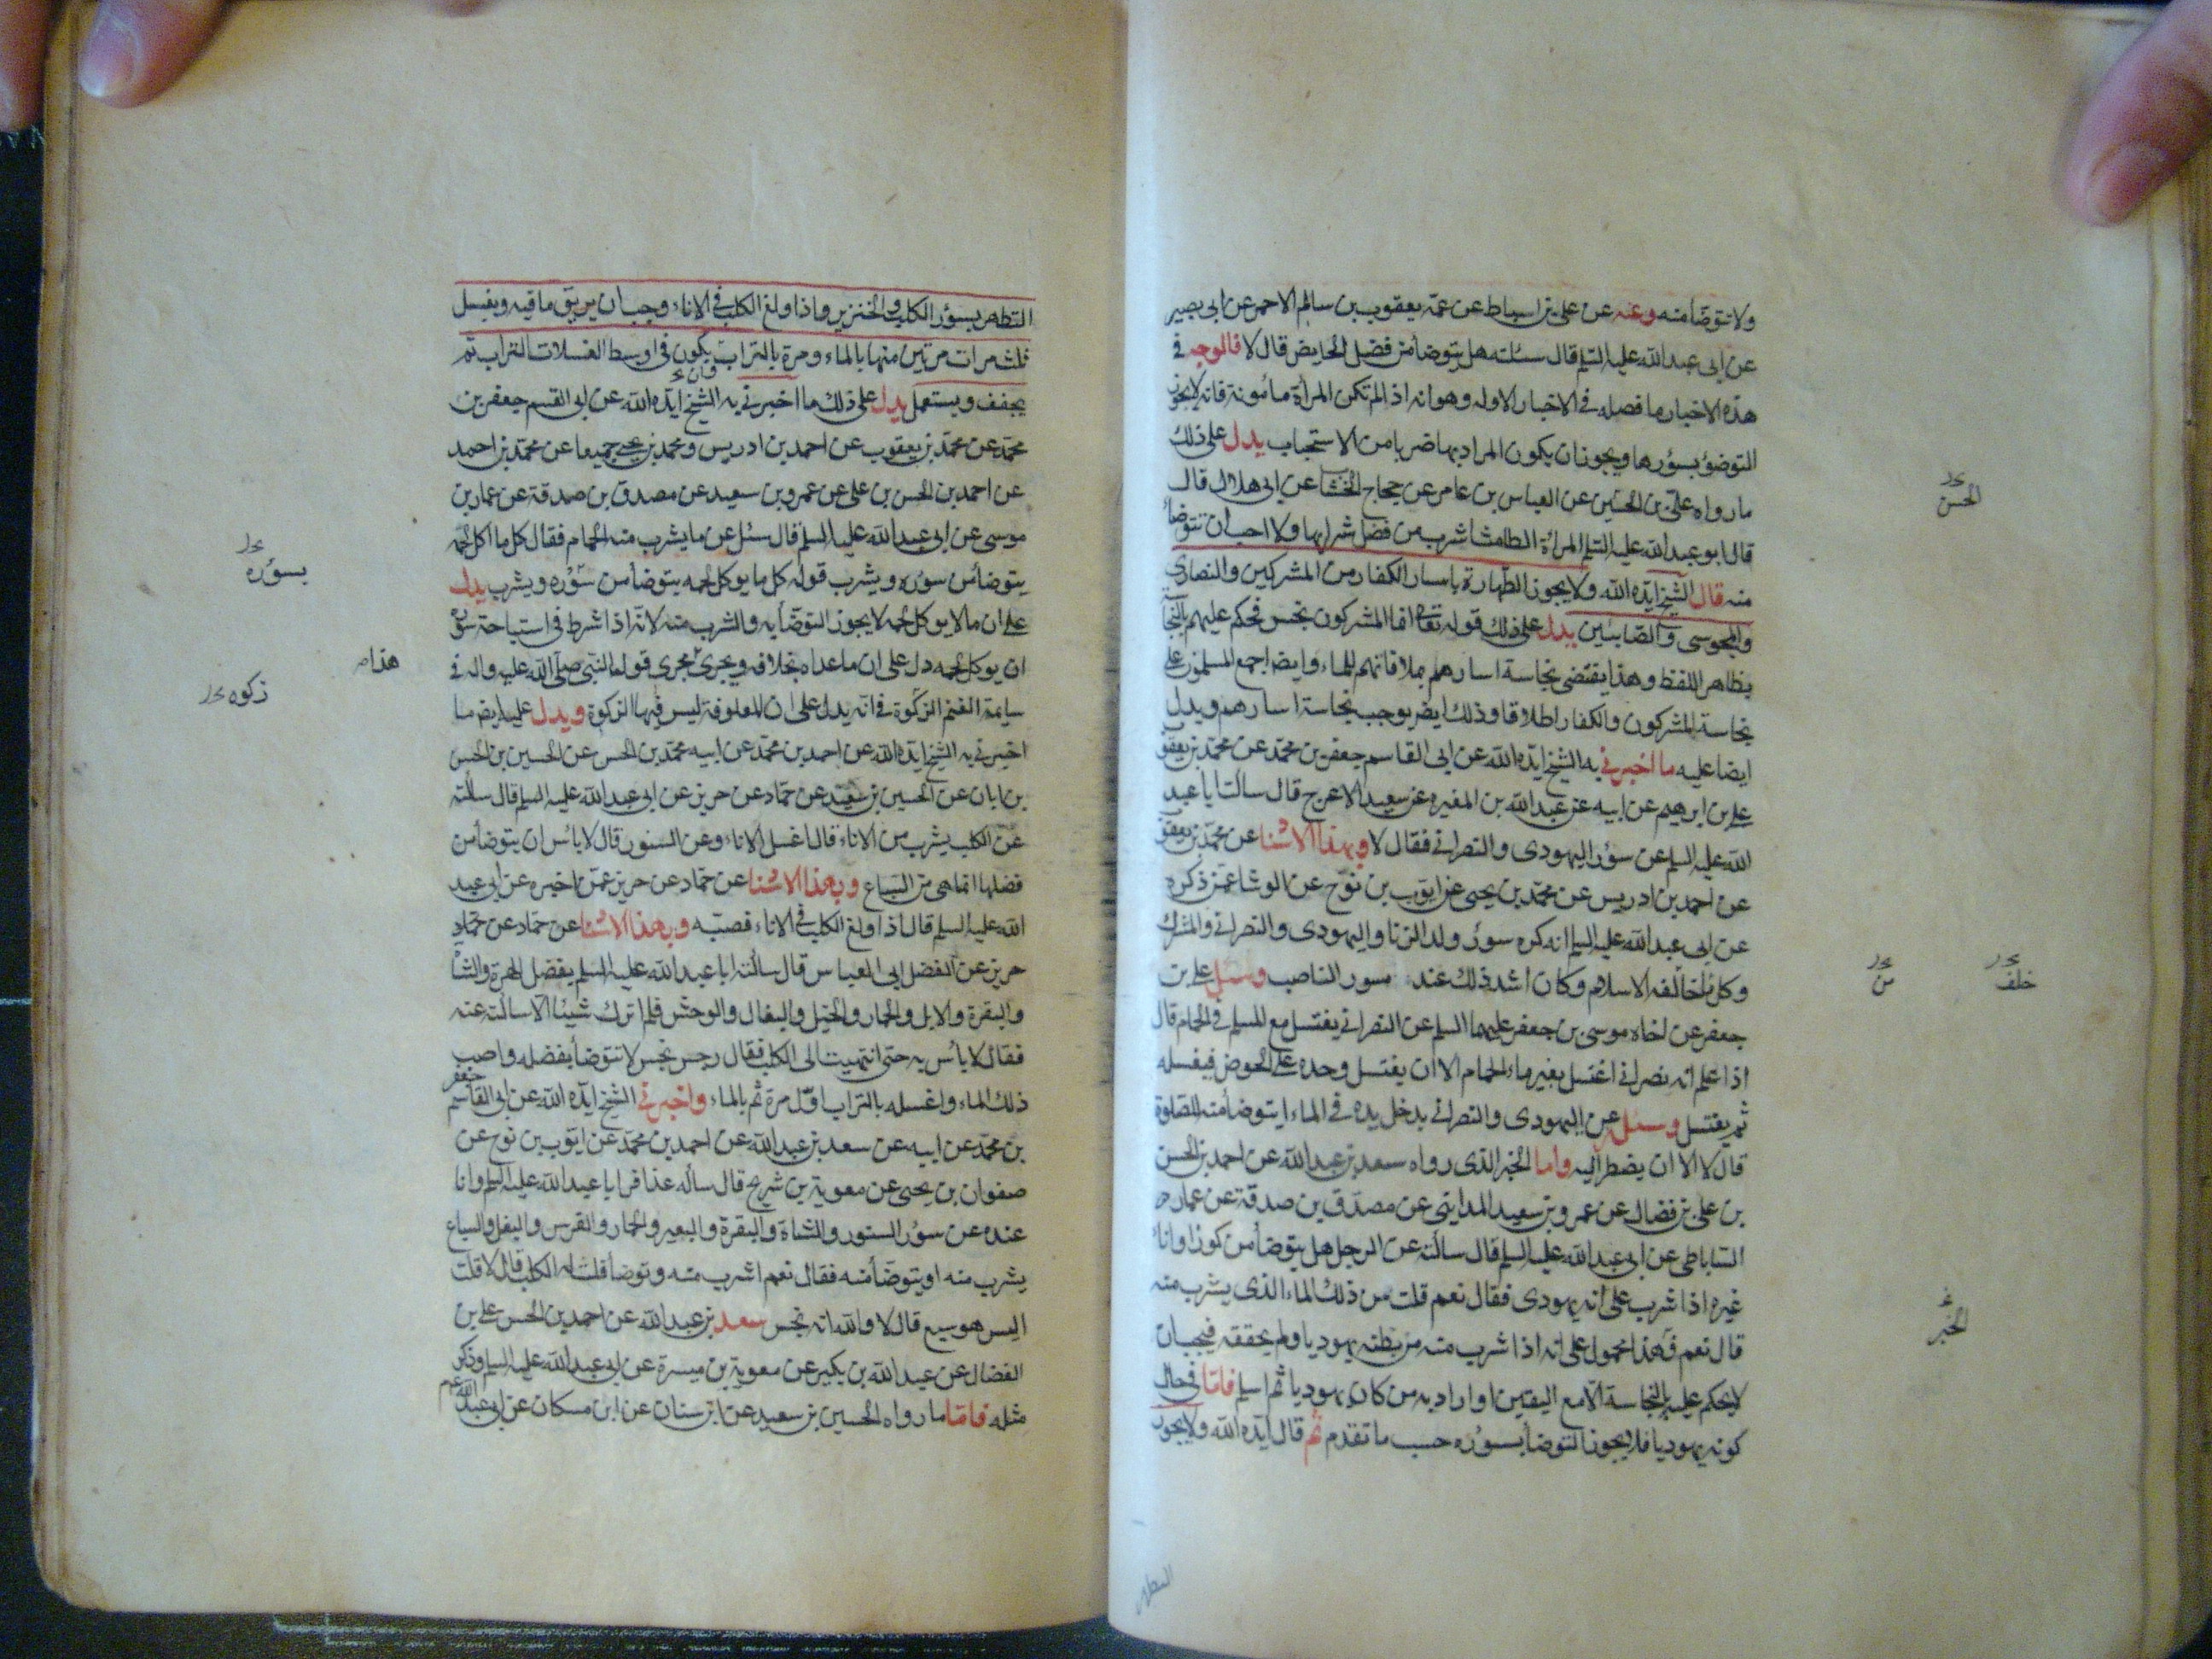 ولا تتوضأ منه وعنه عن علي بن اسباط عن عمّه يعقوب بن سالم الاحمر عن ابي بصير
عن ابي عبد الله عليه السلم قال سئلته هل يتوضأ من فضل الحايض قال لا فالوجه في
هذه الاخبار ما فصله في الاخبار الاوله وهو انه اذا لم تكن المرأة مأمونة فانه لا يجوز
التوضؤ بسؤرها ويجوز ان يكون المراد بها ضربا من الاستحباب يدل على ذلك
ما رواه علي بن الحسين عن العباس بن عامر عن حجاج الخشاب عن ابي هلال قال
الحسن
قال ابو عبد الله عليه السلم المرأة الطامث اشرب من فضل شرابها ولا احب ان تتوضأ
منه قال الشيخ ايّده الله ولا يجوز الطهارة باسار الكفار من المشركين والنصارى
والمجوسي والصابئين يدل على ذلك قوله تعا انما المشركون نجس فحكم عليهم بالنجا
بظاهر اللفظ وهذا يقتضي نجاسة اسارهم بملاقاتهم للماء وايضا اجمع المسلمون على
نجاسة المشركون والكفار اطلاقا وذلك ايضا يوجب نجاسة اسارهم ويدل
ايضا عليه ما اخبرني به الشيخ ايّده الله عن ابي القاسم جعفر بن محمد عن محمد بن يعقوب
علي بن ابرهيم عن ابيه عن عبد الله بن المغيره عن سعيد الاعرج قال سألت ابا عبد
الله عليه السلم عن سؤر اليهودي والنصراني فقال لا وبهذا الاسنا عن محمد بن يعقوب
عن احمد بن ادريس عن محمد بن يحيى عن ايوب بن نوح عن الوشا عمن ذكره
عن ابي عبد الله عليه السلم انه كره سؤر ولد الزنا واليهودي والنصراني والمشرك
وكل ما خالفه الاسلام وكان اشد ذلك عنده سور الناصب وسئل علي بن
خلف
من
جعفر عن اخاه موسى بن جعفر عليهما السلم عن النصراني يغتسل مع المسلم في الحمام قال
اذا علم انه نصراني اغتسل بغير ماء الحمام الا ان يغتسل وحده على الحوض فيغسله
ثم يغتسل وسئل عن اليهودي والنصراني يدخل يده في الماء ايتوضأ منه للصلوة
قال لا الا ان يضطر اليه واما الخبر الذي رواه سعد بن عبد الله عن احمد بن الحسن
بن علي بن فضال عن عمرو بن سعيد المدايني عن مصدّق بن صدقة عن عمار
الساباطي عن ابي عبد الله عليه السلم قال سألته عن الرجل هل يتوضأ من كوز او اناء
غيره اذا شرب على انه يهودي فقال نعم قلت من ذلك الماء الذي يشرب منه
الخبر
قال نعم فهذا محمول على انه اذا شرب منه من يظنه يهوديا ولم يحققه فيجب ان
لا يحكم عليه بالنجاسة الا مع اليقين او اراد به من كان يهوديا ثم اسلم فامّا في حال
كونه يهوديا فلا يجوز التوضأ بسؤره حسب ما تقدم ثم قال ايّده الله ولا يجوز
التطهر
التطهر بسؤر الكلب والخنزير واذا ولغ الكلب في الاناء وجب ان يريق ما فيه ويغسل
ثلث مرات مرتين منها بالماء ومرة بالتراب يكون في اوسط الغسلات التراب ثم
يجفف ويستعمل يدل على ذلك ما اخبرني به الشيخ ايّده الله عن ابي القسم جعفر بن
محمد عن محمد بن يعقوب عن احمد بن ادريس ومحمد بن يحيى جميعا عن محمد بن احمد
عن احمد بن الحسن بن علي عن عمرو بن سعيد عن مصدق بن صدقة عن عمار بن
موسى عن ابي عبد الله عليه السلم قال سئل عن ما يشرب منه الحمام فقال كل ما اكل لحمه
يتوضأ من سؤره ويشرب قوله كل ما يوكل لحمه يتوضأ من سؤره ويشرب يدل
بسؤره
على ان ما لا يوكل لحمه لا يجوز التوضّأ به والشرب منه لانه اذا شرط في استباحة سؤره
ان يوكل لحمه دل على ان ما عداه بخلافه ويجري مجرى قول النبي صلى الله عليه واله في
هذا
سايمة الغنم الزكوة في انه يدل على ان المعلوفة ليس فيها الزكوة ويدل عليه ايضا ما
زكوه
اخبرني به الشيخ ايّده الله عن احمد بن محمد عن ابيه محمد بن الحسن عن الحسين بن الحسن
بن ابان عن الحسين بن سعيد عن حمّاد عن حريز عن ابي عبد الله عليه السلم قال سألته
عن الكلب يشرب من الاناء قال اغسل الاناء وعن السنور قال لا بأس ان يتوضأ من
فضلها انما هي من السباع وبهذا الاسنا عن حمّاد عن حريز عمّن اخبره عن ابي عبد
الله عليه السلم قال اذا ولغ الكلب في الاناء فصبّه وبهذا الاسنا عن حماد عن حمّاد
حريز عن الفضل ابي العباس قال سألت ابا عبد الله عليه السلم بفضل الهرة والشاة
والبقرة والابل والحمار والخيل والبغال والوحش فلم اترك شيئا الا سألته عنه
فقال لا بأس به حتى انتهيت الى الكلب فقال رجس نجس لا تتوضأ بفضله واصبب
ذلك الماء واغسله بالتراب اوّل مرة ثم بالماء واخبرني الشيخ ايّده الله عن ابي القاسم جعفر
بن محمد عن ابيه عن سعد بن عبد الله عن احمد بن محمد عن ايوب بن نوح عن
صفوان بن يحيى عن معوية بن شريح قال سأله عذافر ابا عبد الله عليه السلم وانا
عنده عن سؤر السنور والشاة والبقرة والبعير والحمار والفرس والبغل والسباع
يشرب منه او يتوضّأ منه فقال نعم اشرب منه وتوضأ قلت له الكلب قال لا قلت
اليس هو سبع قال لا والله انه نجس سعد بن عبد الله عن احمد بن الحسن علي بن
الفضال عن عبد الله بن بكير عن معوية بن ميسرة عن ابي عبد الله عليه السلم وذكر
مثله فامّا ما رواه الحسين بن سعيد عن ابن سنان عن ابن مسكان عن ابي عبد الله عم